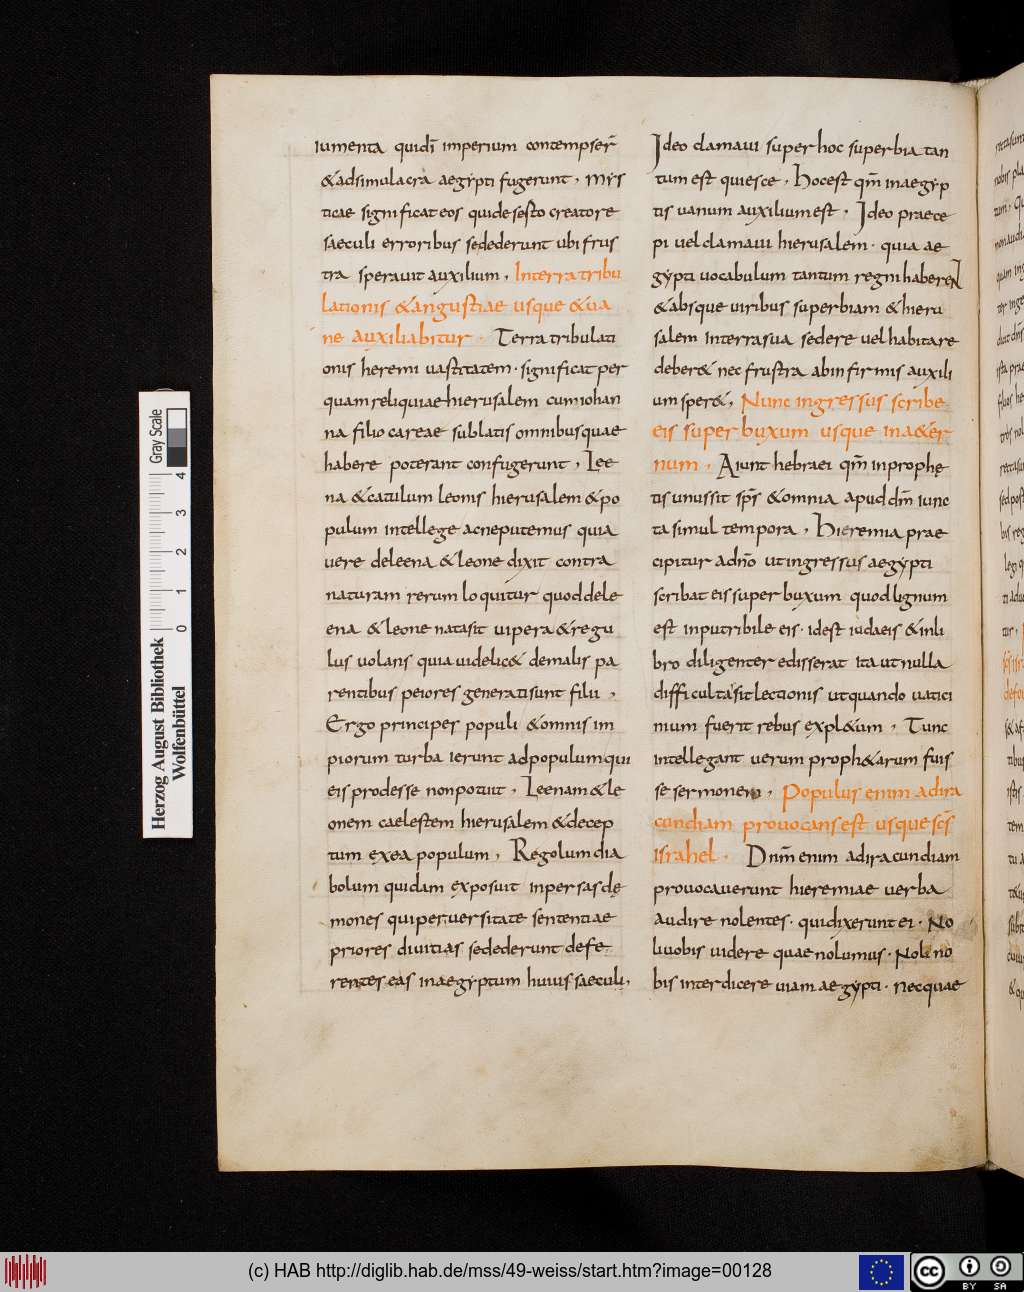 iumenta quidī imperium contempser̄
&adsimulacra aegypti fugerunt, Mys
ticae significat eos quidesesto creatore
saeculi erroribus sedederunt ubi frus
tra speravit auxilium, Interra tribu
lationis &angustiae usque &ua
ne auxiliabitur. Terra tribulati
onis heremi vastitatem. significat per
quam reliquiae hierusalem cum iohan
na filio careae sublatis omnibus quae
habere poterant confugerunt, Lee
na &catulum leonis hierusalem &po
pulum intellege ac ne putemus quia
vere deleena &leone dixit contra
naturam rerum loquitur quod dele
ena &leone natasit vipera &regu
lus volans quia videlic& demalis pa
rentibus peiores generati sunt filii,
Ergo principes populi &omnis im
piorum turba ierunt adpopulum qui
eis prodesse non potuit, Leenam &le
onem caelestem hierusalem &decep
tum exea populum, Regolum dia
bolum quidam exposuit inpersas dę
mones qui perversitate sententiae
priores divitias sedederunt defe
rentes eas inaegyptum huius saeculi,
Ideo clamavi super hoc superbia tan
tum est quiesce, Hoc est qm̄ inaegyp
tis vanum auxilium est, Ideo praece
pi vel clamavi hierusalem. quia ae
gypti vocabulum tantum regni habereN
&absque viribus superbiam &hieru
salem interra sua sedere vel habitare
deber& nec frustra abinfirmis auxili
um sper&, Nunc ingressus scribe
eis super buxum usque ina&er
num, Aiunt hebraei qm̄ inprophę
tis unus sit sp̄s &omnia apud dm̄ iunc
ta simul tempora, Hieremia prae
cipitur adn̄o ut ingressus aegypti
scribat eis super buxum quod lignum
est inputribile eis. id est iudaeis &inli
bro diligenter edisserat ita ut nulla
difficultas sit lectionis ut quando vatici
nium fuerit rebus expl&um, Tunc
intellegant verum proph&arum fuis
se sermonem, Populus enim adira
cundiam provocans est usque sc̄s
israhel. Dnm̄ enim adiracundiam
provocaverunt hieremiae verba
audire nolentes. qui dixerunt ei. No
li vobis videre quae nolumus. Noli no
bis interdicere viam aegypti. necquae
Herzog August Bibliothek
Wolfenbüttel
0 1 2 3 4
Gray Scale
(c) HAB http://diglib.hab.de/mss/49-weiss/start.htm?image=00128
cc BY SA